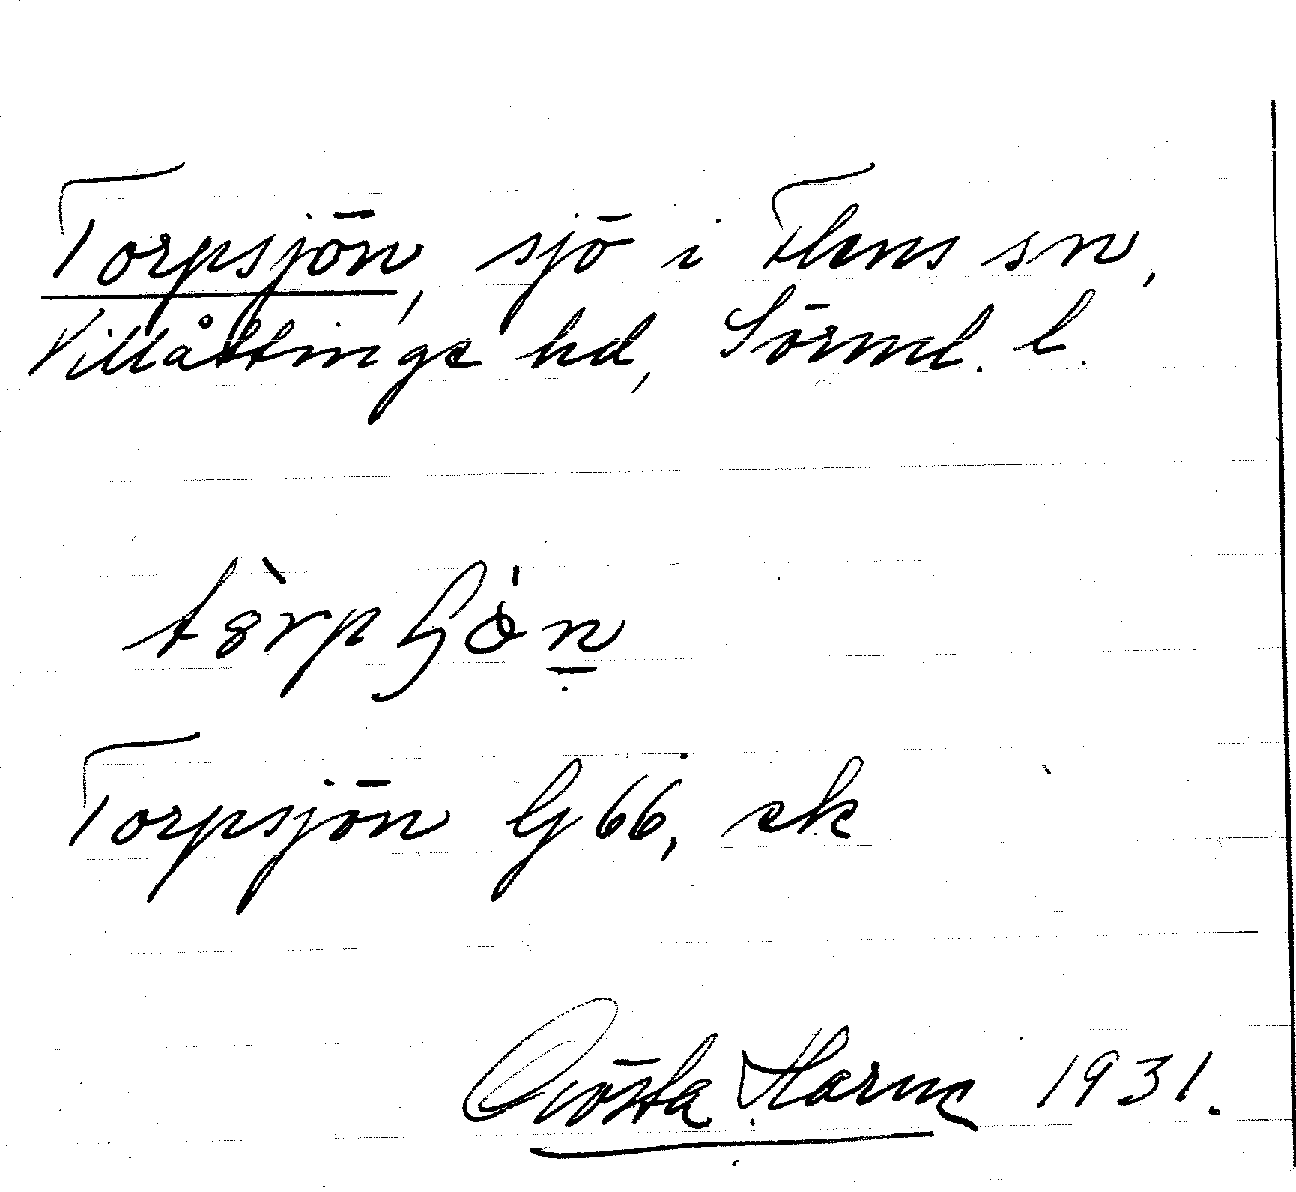 Torpsjön, sjö i Flens sn,
Villåttinge hd, Sörml. l.
Torpsjön G 66, ek
Gösta Harne 1931.